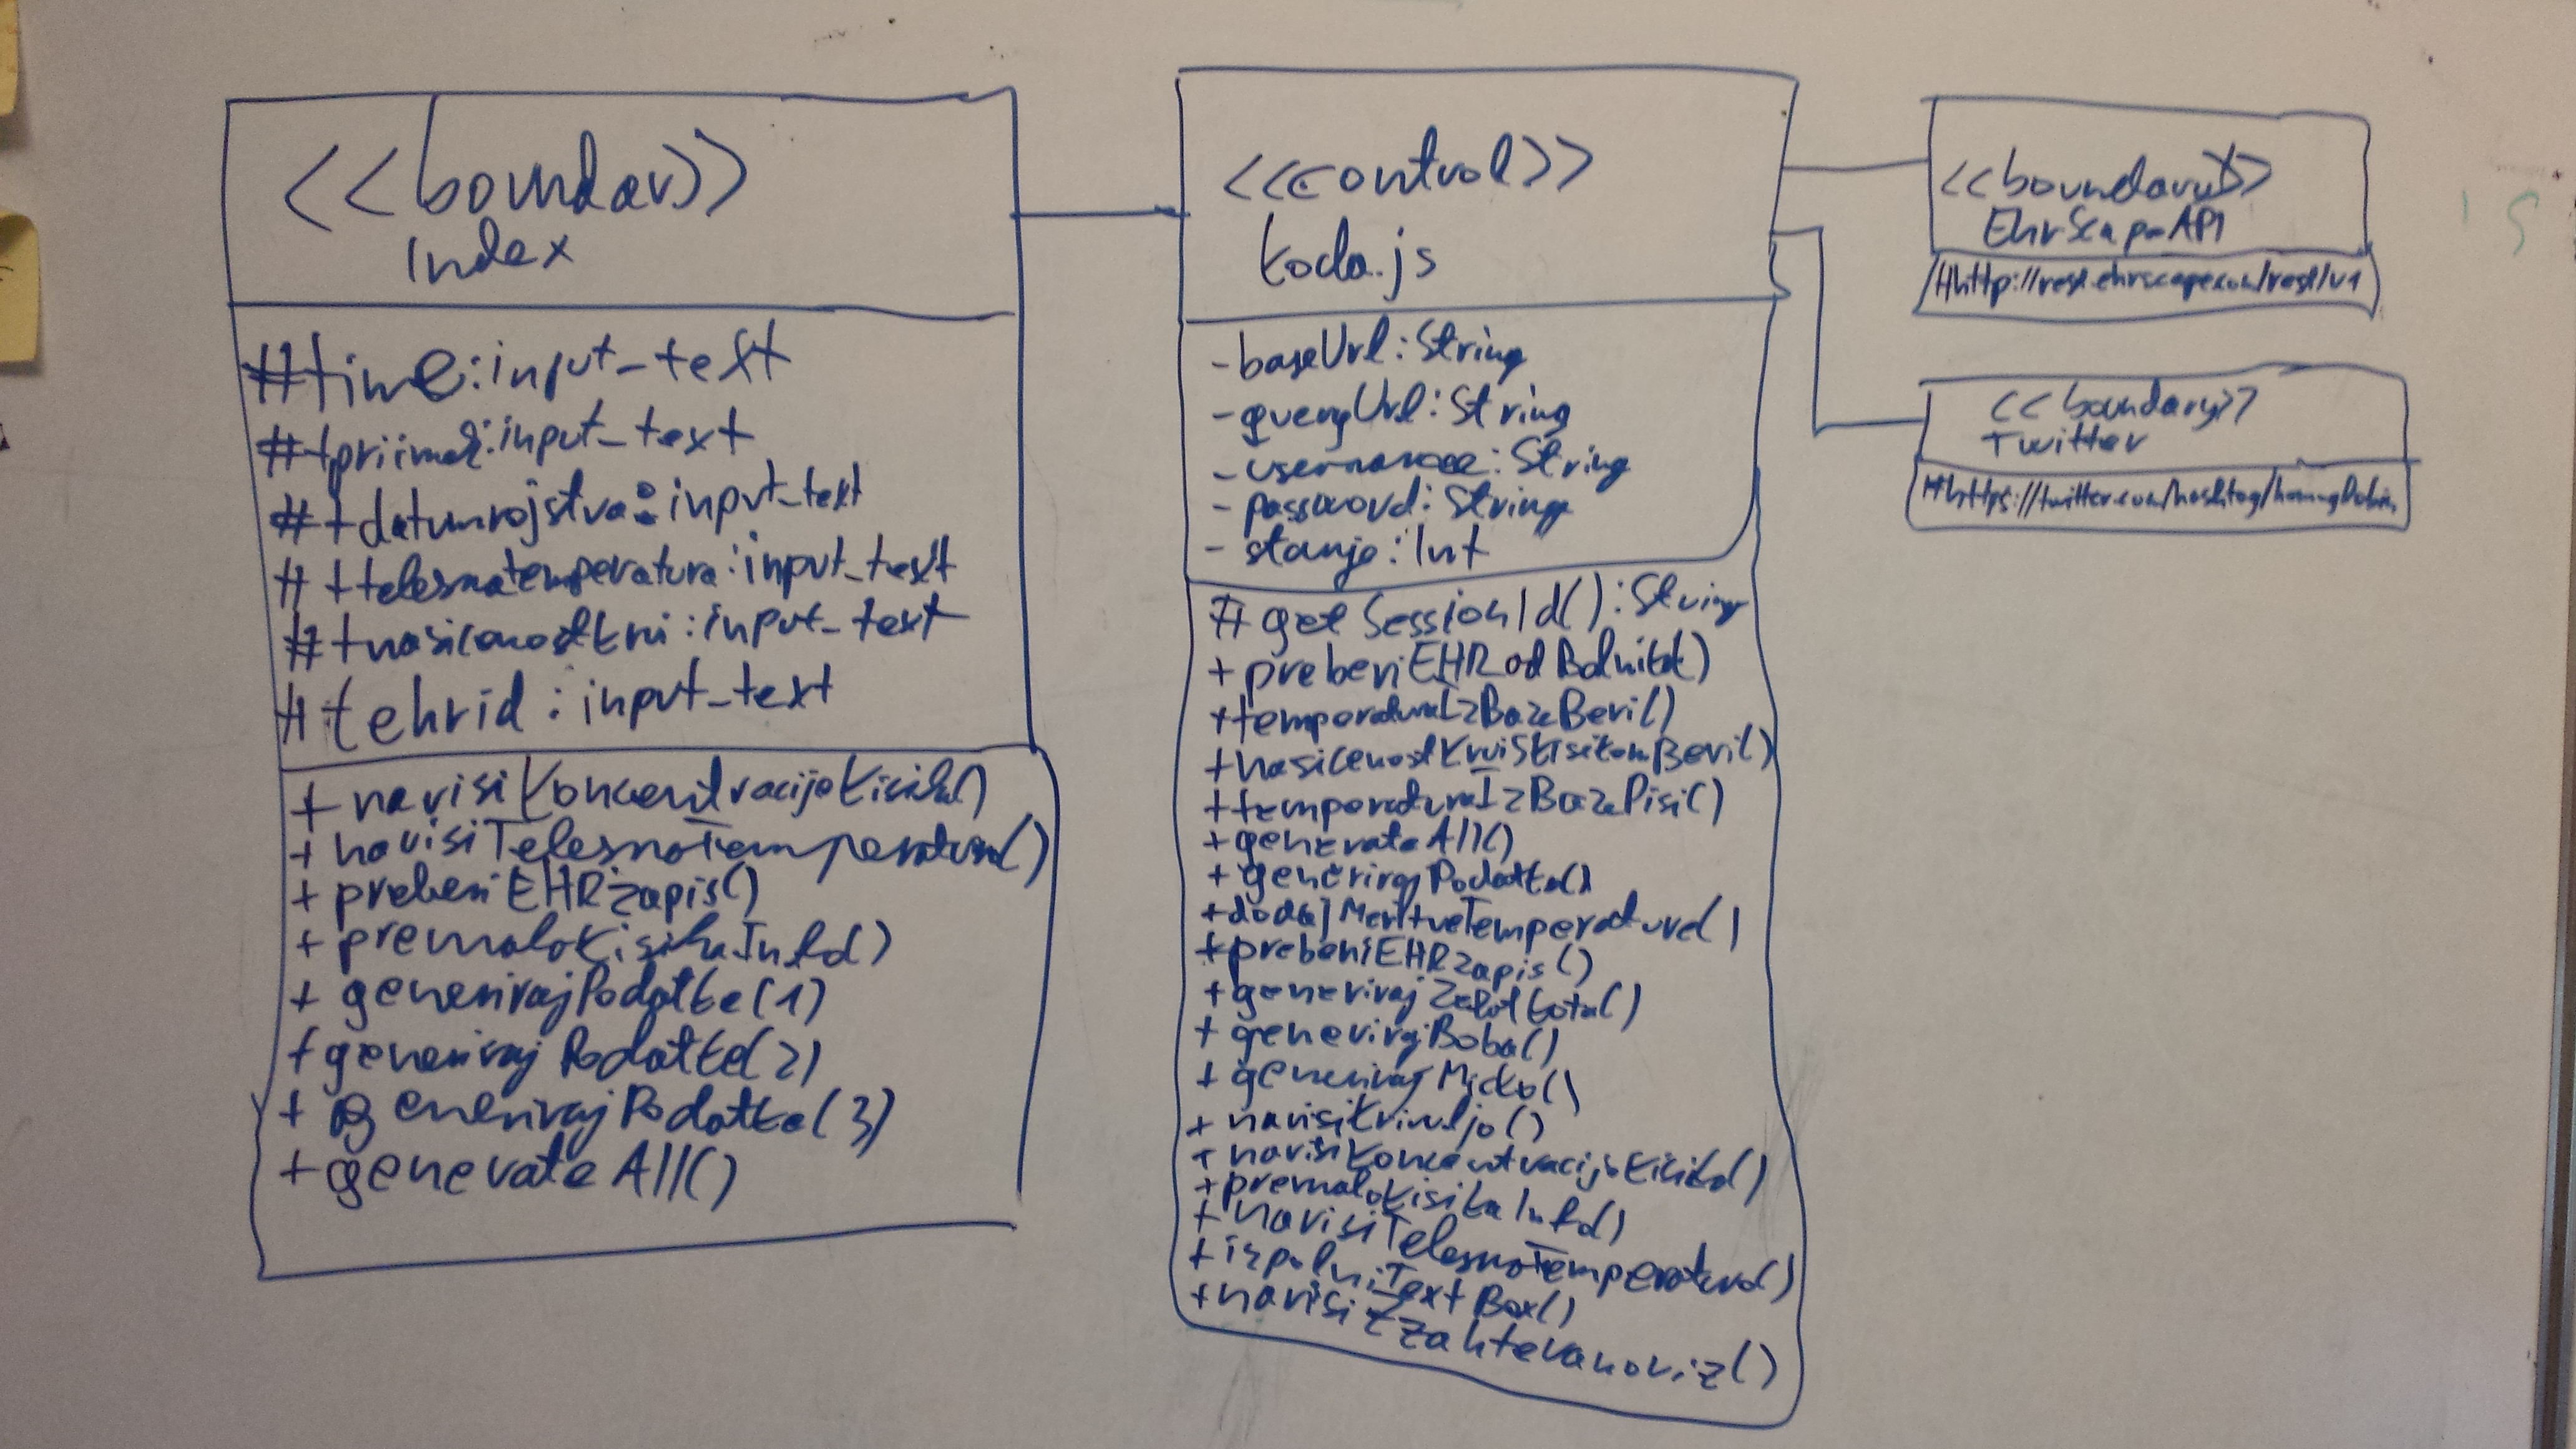 <<boundar>>
Index
#time:input_text
#tpriimek:input_text
#tdatumrojstva:input_text
#ttelesnatemperatura:input_text
#tnasicenostkrvi:input_text
#tehrid:input_text
+navisiKoncentracijoKisika()
+navisiTelesnoTemperaturo()
+preberiEHRzapis()
+premaloKisikaInfo()
+generirajPodatke(1)
+generirajPodatke(2)
+generirajPodatke(3)
+generateAll()
<<control>>
koda.js
-baseUrl:String
-queryUrl:String
-username:String
-password:String
-stanje:Int
#getSessionId():String
+preberiEHRodBolnika()
+temperaturaIzBazeBeri()
+nasicenostKrviSKisikomBeri()
+temperaturaIzBazePisi()
+generateAll()
+generirajPodatke()
+dodajMeritveTemperature()
+preberiEHRzapis()
+generiraj
+generirajBoba()
+generirajMicko()
+navisiKrivuljo()
+navisiKoncentracijoKisika()
+premaloKisikaInfo()
+navisiTelesnoTemperaturo()
+izpolniTextBox()
+navisiZZahtevanoviz()
<<boundary>>
EhrScapeAPI
#http://rest.ehrscape.com/rest/v1
<<boundary>>
Twitter
#https://twitter.com/hashtag/